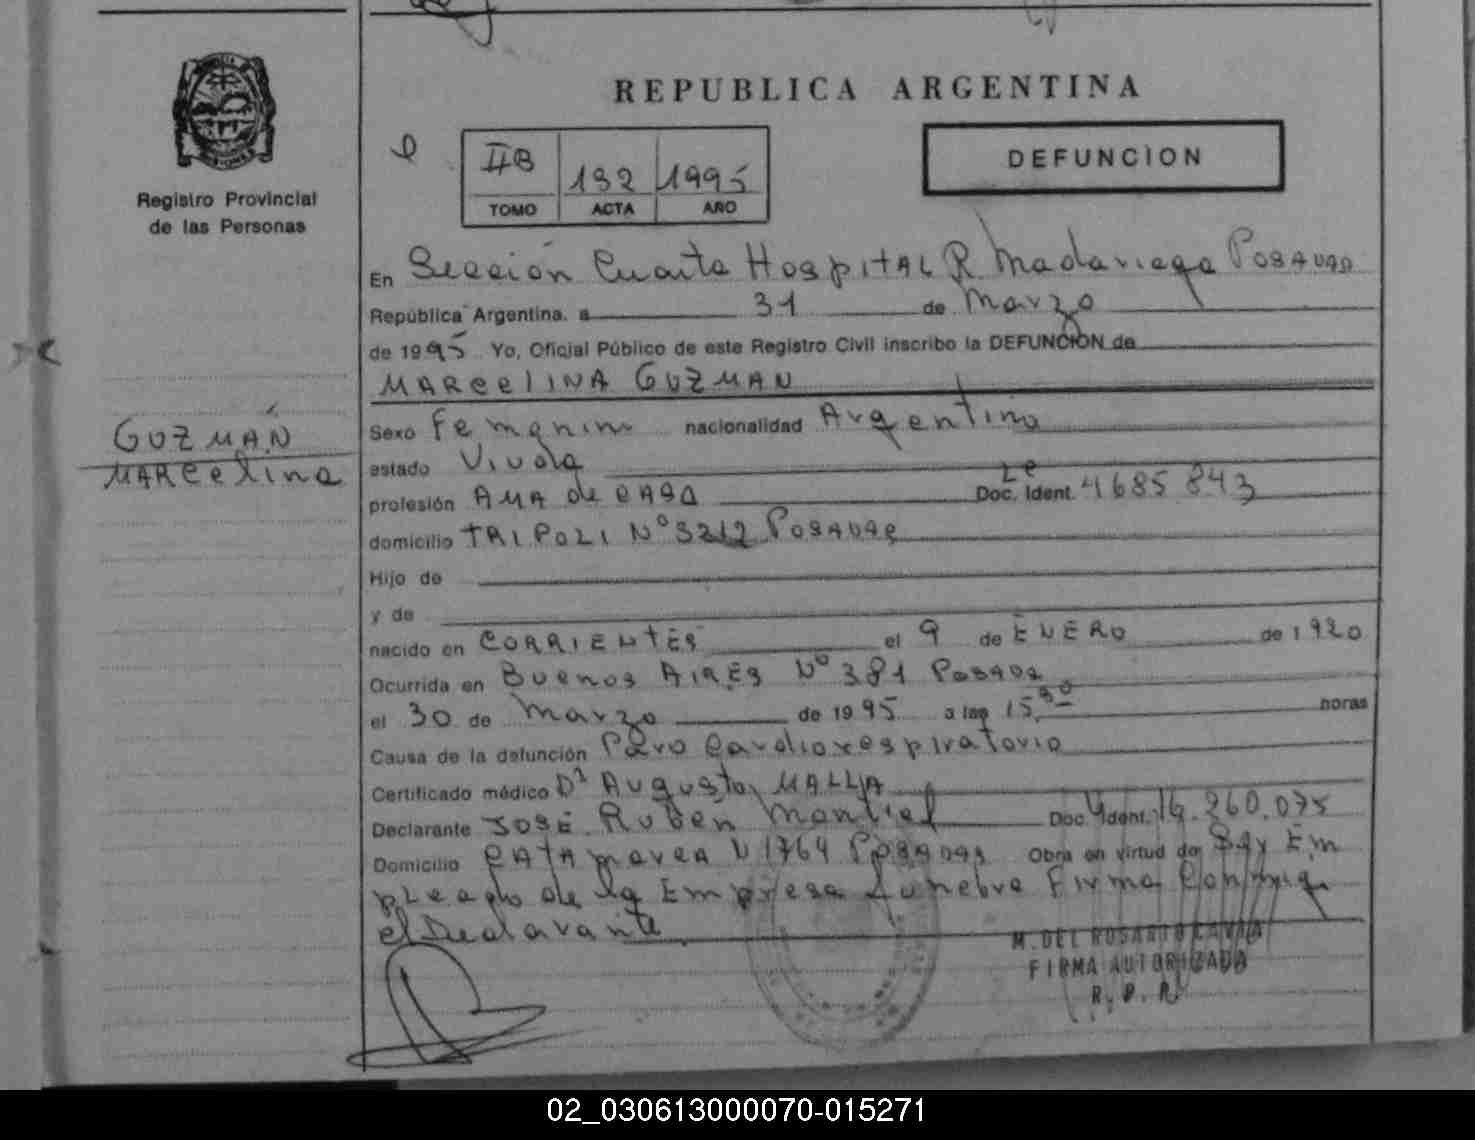 REPUBLICA ARGENTINA
Registro Provincial
de las Personas
IIB 192 1995
TOMO ACTA AÑO
DEFUNCION
En Sección Cuarta Hospital R Madariaga Posadas
República Argentina, a 31 de Marzo
de 1995 Yo, Oficial Público de este Registro Civil inscribo la DEFUNCION de
MARCELINA GUZMAN
GUZMÁN
MARCELINA
Sexo Femenino nacionalidad Argentina
estado Viuda
profesión AMA de CASA Doc. Ident. 4685843
domicilio TRIPOLI Nº 3212 Posadas
Hijo de
y de
nacido en CORRIENTES el 9 de ENERO de 1920
Ocurrida en Buenos Aires Nº 381 Posadas
el 30 de Marzo de 1995 a las 15,30 horas
Causa de la defunción Paro Cardiorespiratorio
Certificado médico Dr Augusto MALLIA
Declarante JOSÉ Ruben Montiel Doc. Ident. 16.260.075
Domicilio CATAMARCA N 1764 Posadas Obra en virtud de Ser Em
pleado de la Empresa Funebre Firma Conmigo
el Declarante
M. DEL ROSARIO
FIRMA AUTORIZADA
R. P. P.
02_030613000070-015271